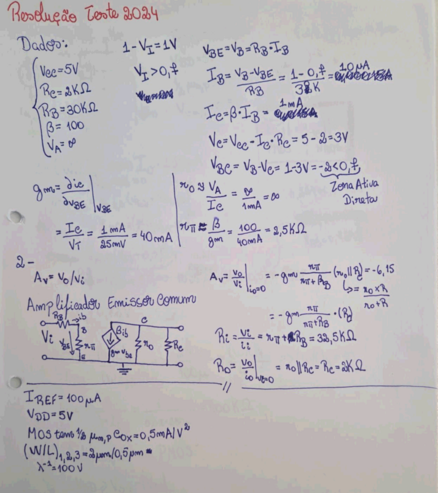 Resolução Teste 2024
Dados:
Vcc = 5V
Rc = 2KΩ
RB = 30KΩ
β = 100
VA = ∞
1 - VI = 1V
VI > 0,7
VBE = VB = RB · IB
IB = (VB - VBE)/RB = (1 - 0,7)/K = 10µA
Ic = β · IB = 1mA
Vc = Vcc - Ic · Rc = 5 - 2 = 3V
VBC = VB - Vc = 1 - 3V = -2 < 0,7
Zona Ativa
Direta
gm = ∂ic/∂vBE |VBE
= Ic/VT = 1mA/25mV = 40mA
ro ≈ VA/Ic = ∞/1mA = ∞
rπ = β/gm = 100/40mA = 2,5KΩ
2 -
Av = vo/vi
Amplificador Emissor Comum
RB ib B C
Vi vBE rπ βib ro Rc
E
Av = vo/vi |io=0 = -gm rπ/(rπ + RB) (ro // Rc) = -6,15
= -gm rπ/(rπ + RB) · (Rc)
Ri = vi/ii = rπ + RB = 32,5KΩ
Ro = vo/io = ro // Rc = Rc = 2KΩ
IREF = 100µA
VDD = 5V
MOS tem 1/2 µm,p Cox = 0,5mA/V²
(W/L)1,2,3 = 2µm/0,5µm
λ⁻¹ = 100V